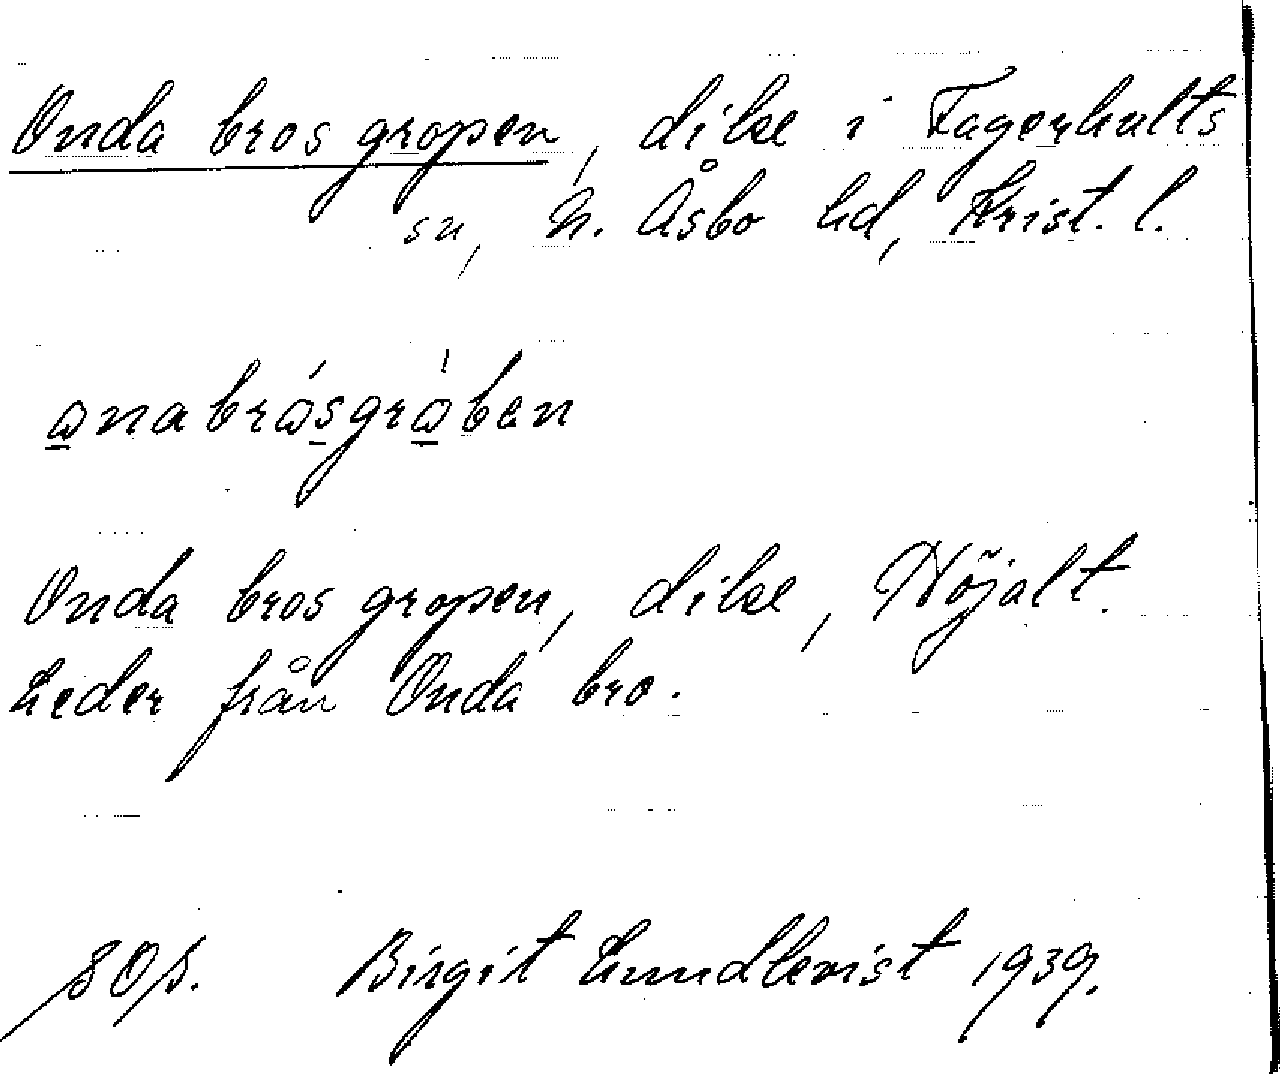 Onda bros gropen, dike i Fagerhults
sn, N. Åsbo hd, Krist. l.
Onda bros gropen, dike, Höjalt.
Leder från Onda bro.
Birgit Lundkvist 1939.